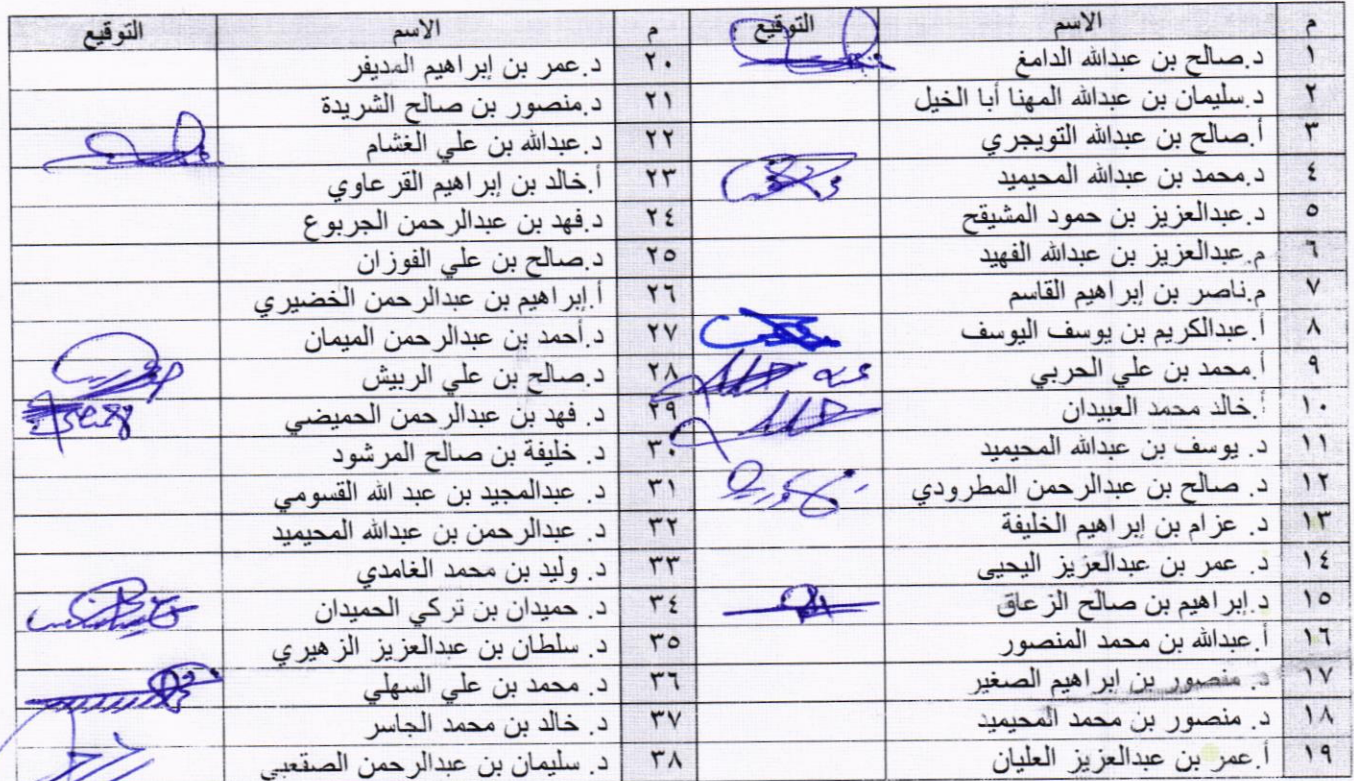 م الاسم التوقيع م الاسم التوقيع
١ د.صالح بن عبدالله الدامغ ٢٠ د.عمر بن إبراهيم المديفر
٢ د.سليمان بن عبدالله المهنا أبا الخيل ٢١ د.منصور بن صالح الشريدة
٣ أ.صالح بن عبدالله التويجري ٢٢ د.عبدالله بن علي الغشام
٤ د.محمد بن عبدالله المحيميد ٢٣ أ.خالد بن إبراهيم القرعاوي
٥ د.عبدالعزيز بن حمود المشيقح ٢٤ د.فهد بن عبدالرحمن الجربوع
٦ م.عبدالعزيز بن عبدالله الفهيد ٢٥ د.صالح بن علي الفوزان
٧ م.ناصر بن إبراهيم القاسم ٢٦ أ.إبراهيم بن عبدالرحمن الخضيري
٨ أ.عبدالكريم بن يوسف اليوسف ٢٧ د.أحمد بن عبدالرحمن الميمان
٩ أ.محمد بن علي الحربي ٢٨ د.صالح بن علي الربيش
١٠ أ.خالد محمد العبيدان ٢٩ د. فهد بن عبدالرحمن الحميضي
١١ د. يوسف بن عبدالله المحيميد ٣٠ د. خليفة بن صالح المرشود
١٢ د. صالح بن عبدالرحمن المطرودي ٣١ د. عبدالمجيد بن عبد الله القسومي
١٣ د. عزام بن إبراهيم الخليفة ٣٢ د. عبدالرحمن بن عبدالله المحيميد
١٤ د. عمر بن عبدالعزيز اليحيى ٣٣ د. وليد بن محمد الغامدي
١٥ د.إبراهيم بن صالح الزعاق ٣٤ د. حميدان بن تركي الحميدان
١٦ أ.عبدالله بن محمد المنصور ٣٥ د. سلطان بن عبدالعزيز الزهيري
١٧ د. منصور بن إبراهيم الصغير ٣٦ د. محمد بن علي السهلي
١٨ د. منصور بن محمد المحيميد ٣٧ د. خالد بن محمد الجاسر
١٩ أ.عمر بن عبدالعزيز العليان ٣٨ د. سليمان بن عبدالرحمن الصقعبي